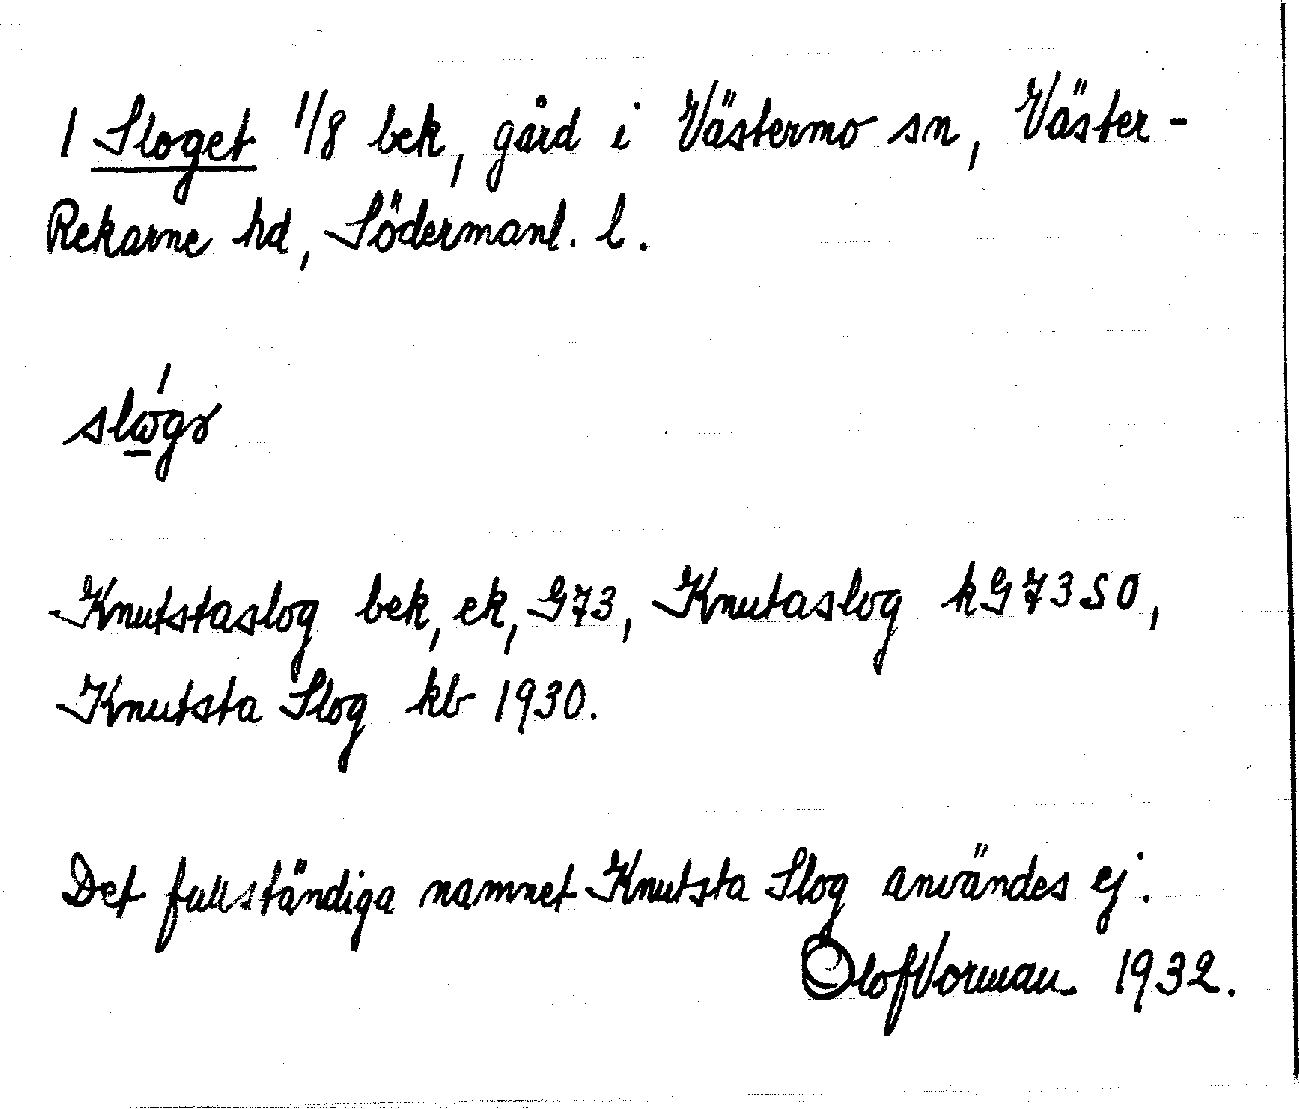 1 Sloget 1/8 bek, gård i Västermo sn, Väster-
Rekarne hd, Södermanl. l.
Knutstaslog bek, ek, G73, Knutaslog kG73SO,
Knutsta Slog kb 1930.
Det fullständiga namnet Knutsta Slog användes ej.
Olof Vorman 1932.